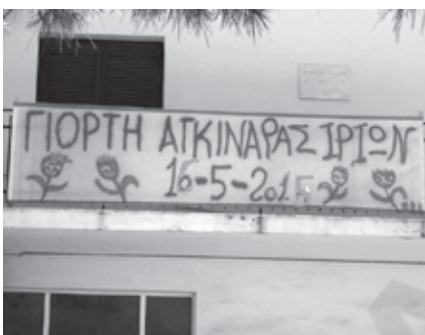 ΓΙΟΡΤΗ ΑΓΚΙΝΑΡΑΣ ΙΡΙΩΝ
16-5-2015